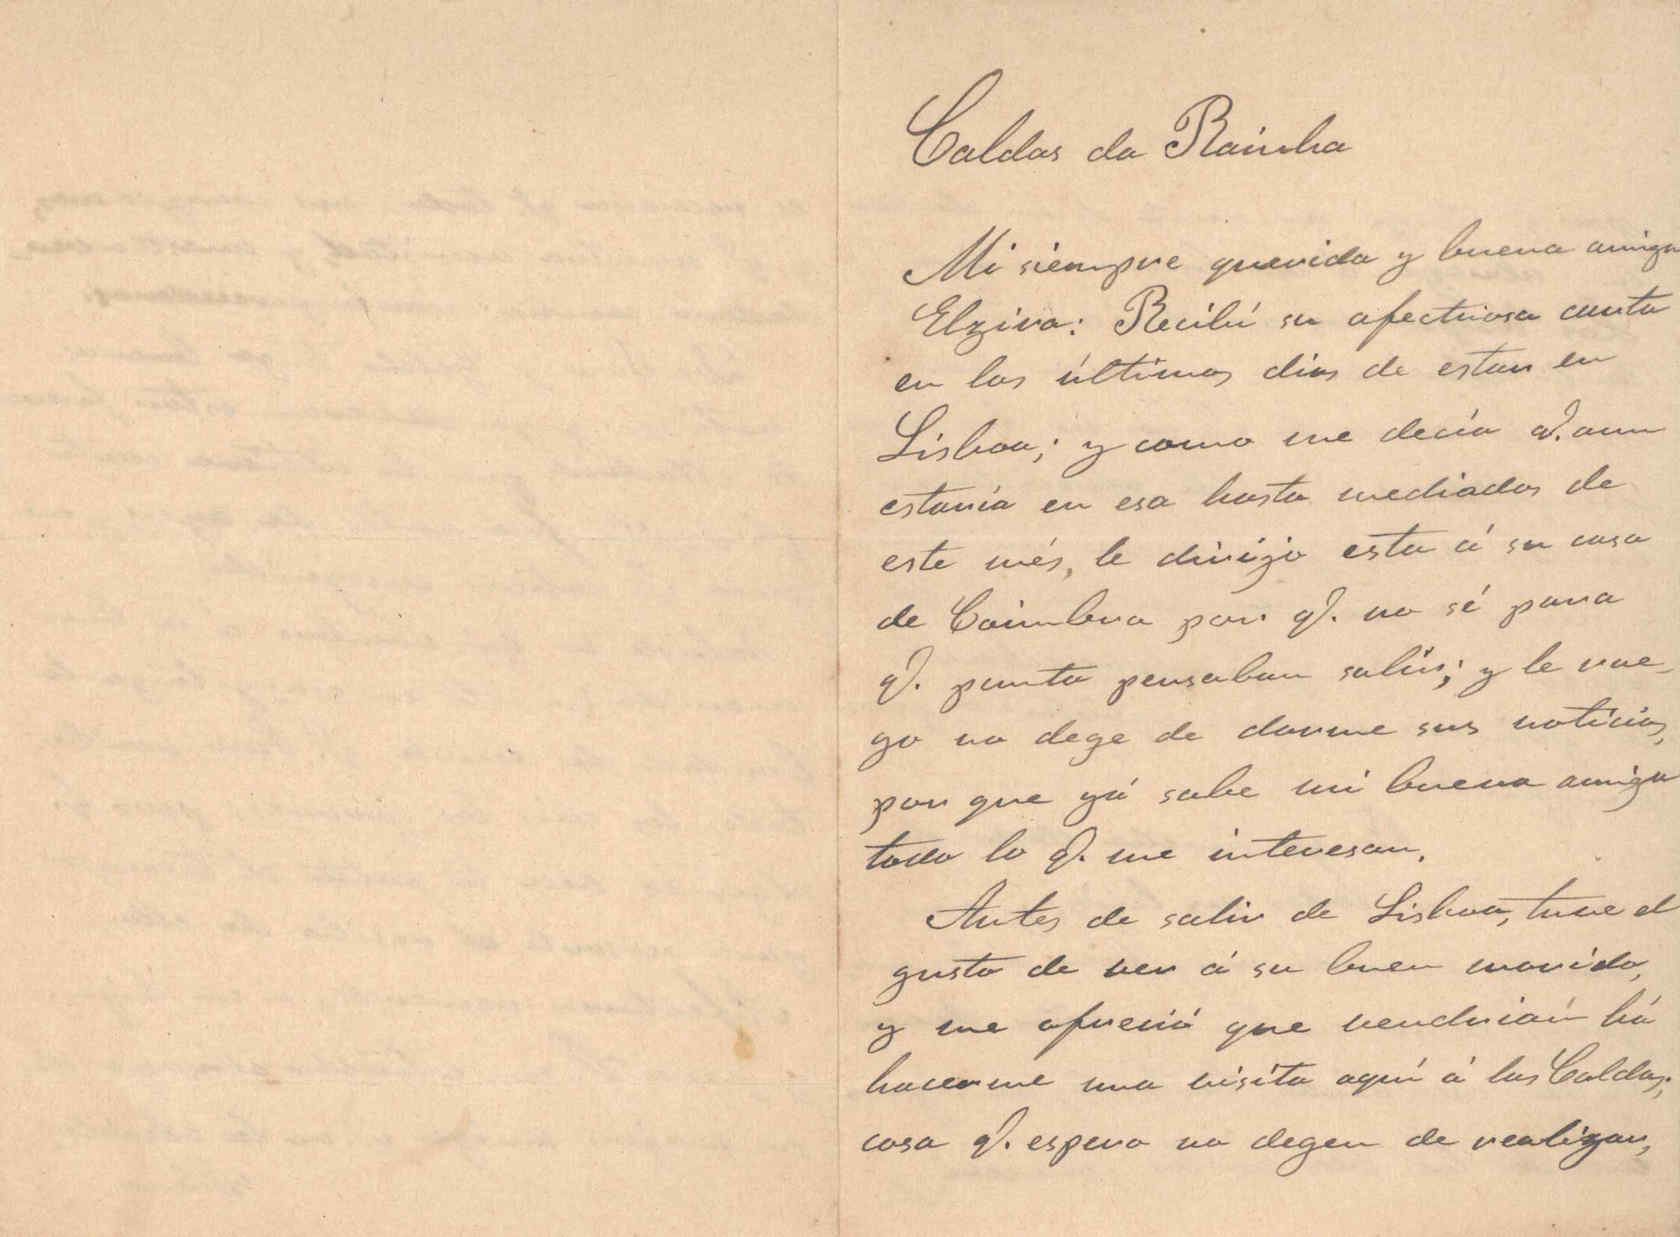 Caldas da Rainha
Mi siempre querida y buena amiga
Elzira: Recibí su afectuosa carta
en los últimos dias de estar en
Lisboa; y como me decía q. aun
estaría en esa hasta mediados de
este més, le dirijo esta á su casa
de Coimbra por q. no sé para
q. punto pensaban salir; y le rue-
go no dege de darme sus noticias,
por que yá sabe mi buena amiga
todo lo q. me interesan.
Antes de salir de Lisboa, tuve el
gusto de ver á su buen marido,
y me ofreció que vendrián há
hacerme una visita aquí á las Caldas;
cosa q. espero no degen de realizar,